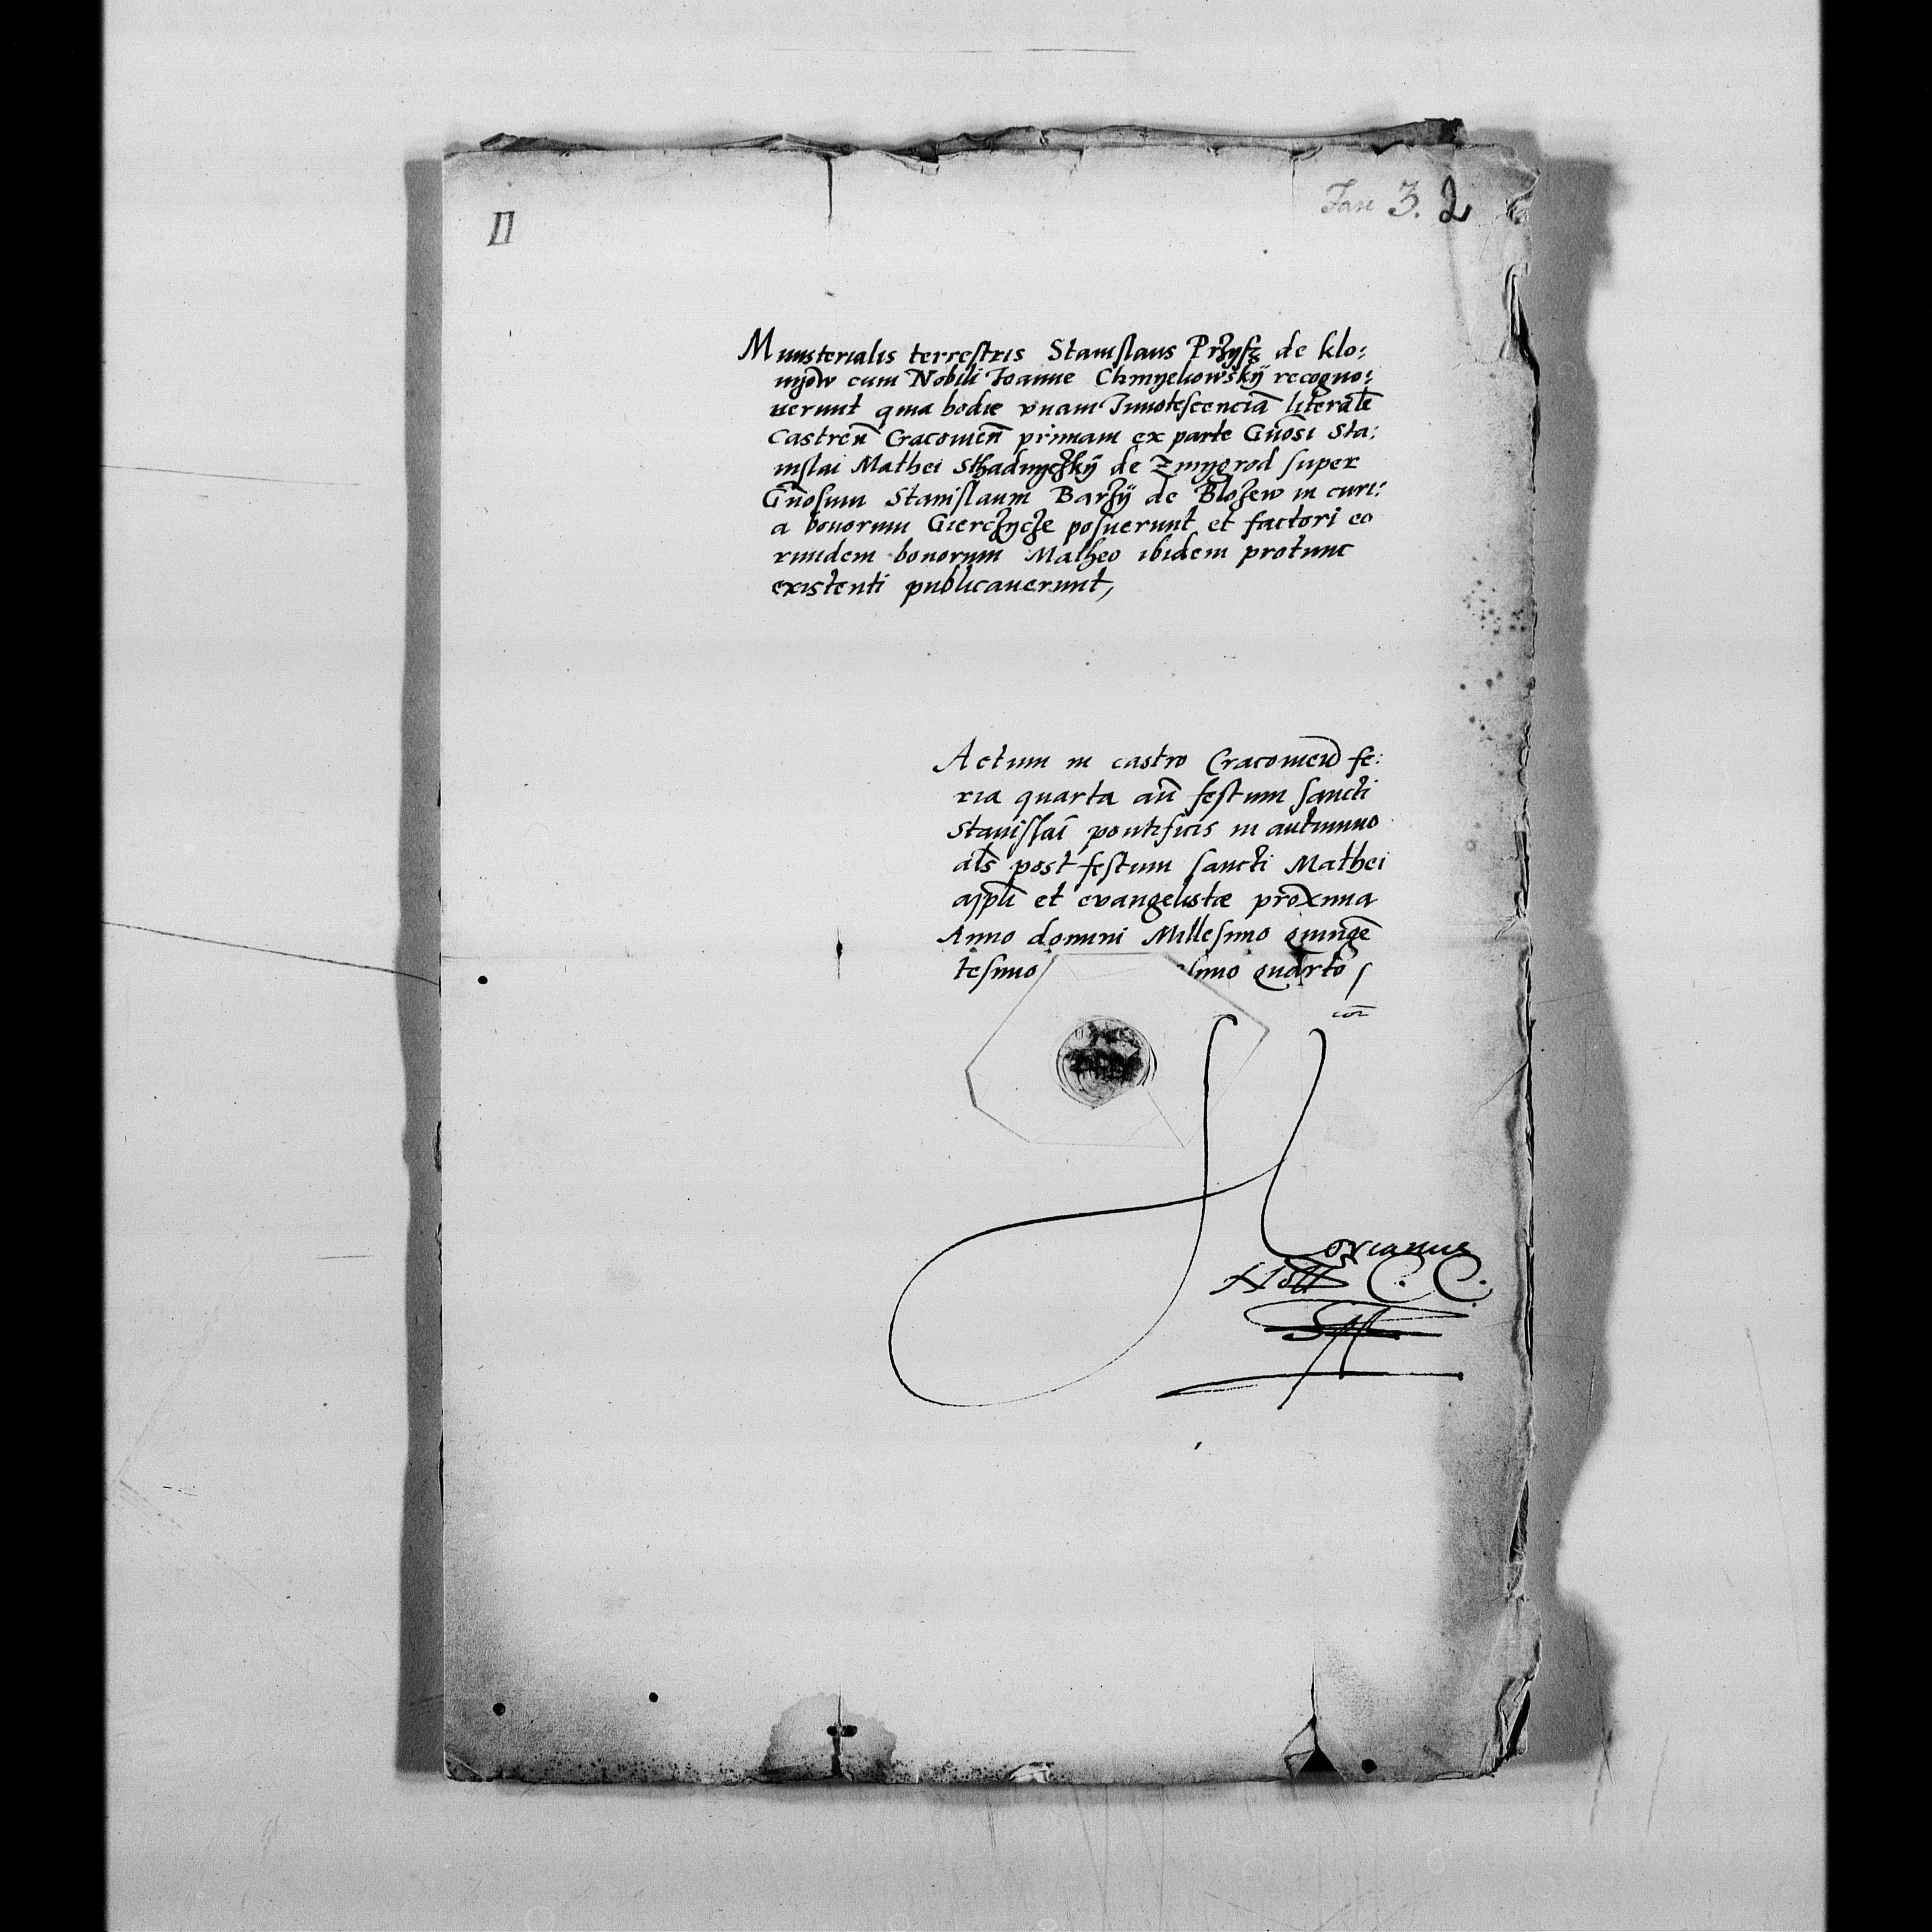 II
Fasc 3. 2
Ministerialis terrestris Stanislaus Przysz de klo:
nyow cum Nobili Joanne Chmyeliowskÿ recogno:
uerunt quia hodie vnam Innotescenciã literalẽ
castreñ Cracovieñ primam ex parte Gñosi Sta:
nislai Mathei Sthadnyczkÿ de Zmygrod super
Gñosum Stanislaum Barzÿ de Blozew in curi:
a bonorum Gierczycze posuerunt et factori eo
rundem bonorum Matheo ibidem protunc
existenti publicauerunt,
Actum in castro Cracovieñ fe:
ria quarta añ festum sancti
Stanislai pontificis in autumno
als post festum sancti Mathei
appli et evangelistæ proxima
Anno domini Millesimo quingẽ
tesimo simo quarto
cor
orianus
C. C.